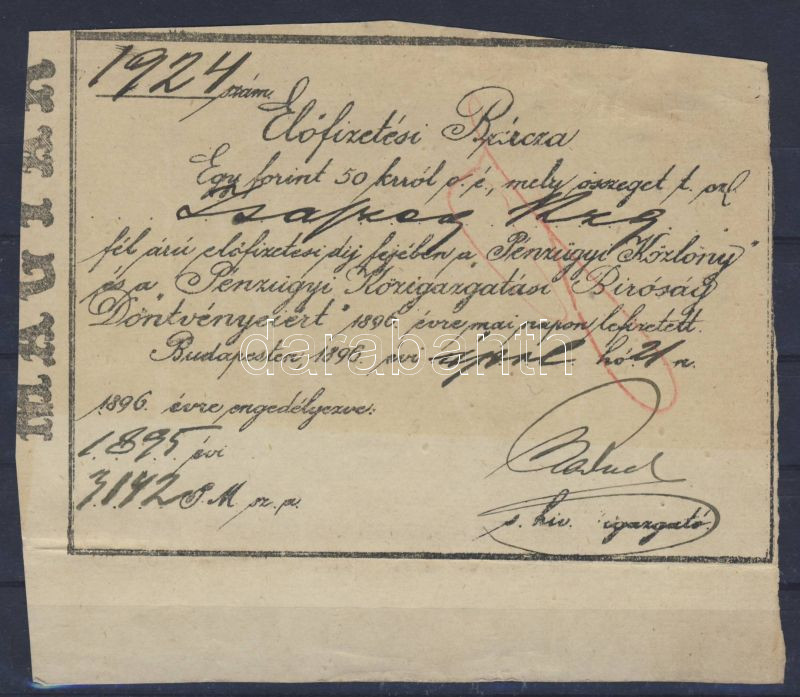 MAGYAR
1924 szám.
Előfizetési Bárcza
Egy forint 50 krról o. é., mely összeget t. cz.
fél árú előfizetési díj fejében a "Pénzügyi Közlöny"
és a "Pénzügyi Közigazgatási Biróság
Döntvényeiért" 1896. évre mai napon lefizetett.
Budapesten, 1896. évi april hó 21 n.
darabanth
1896. évre engedélyezve:
1895 évi
3142 P. M. sz. a.
s. hiv. igazgató.